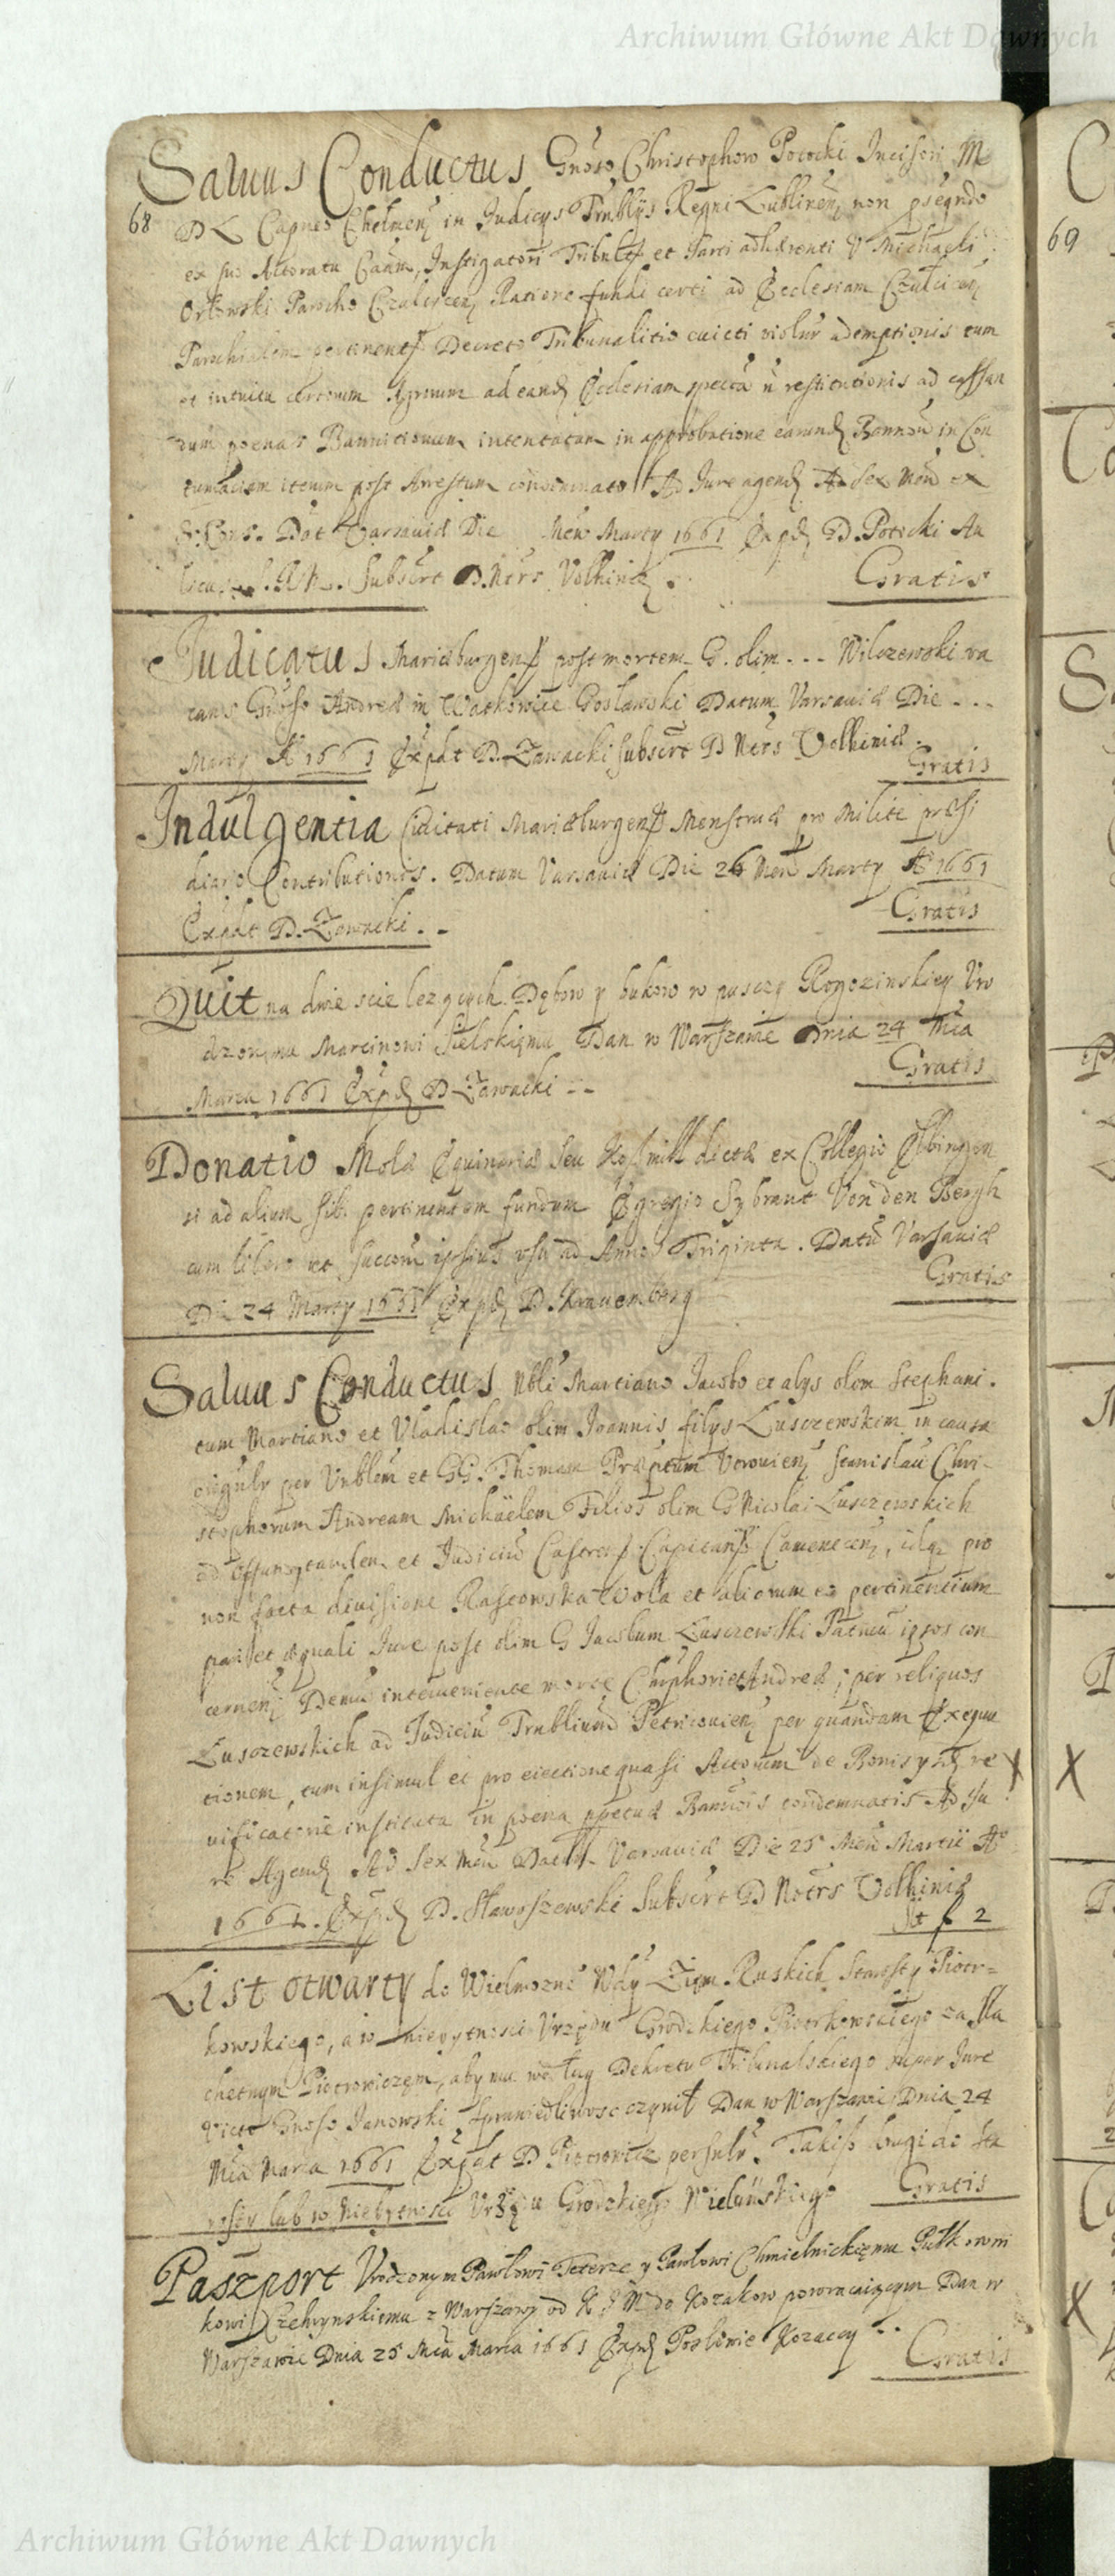 Archiwum Główne Akt Dawnych
68
Saluus Conductus Gnoso Christophoro Potocki Incisori M
D L Capneo Chelmen in Judicys Trnblijs Regni Lublinen non pseqndo
ex suo Actoratu Caum, Instigatori Tribulis et Parti adhærenti V Michaeli
Orłowski Parocho Czulcicen Ratione fundi certi ad Ecclesiam Czułcicen
Parochialem pertinents Decreto Tribunalitio euicti violur ademptionis eum
et intuitu certorum Agrorum ad eand Ecclesiam specta n restitutionis ad cassan
dum poenas Bannitionum intentatam in approbatione earund Bannou in Con
tumaciam iterum post Arrestum condemnato Ad Jure agend Ad sex Men ex
S: Cons. Dat Varsauiæ Die Men Marty 1661 Expd D. Potocki Au
licus S. R. M. Subscrt D. Ntrs Volhiniæ.
Gratis
Judicatus Mariæburgens post mortem G. olim . . . Wilczewski va
cans Gnoso Andreæ in Watkowice Gosławski Datum Varsauiæ Die . . .
Marty Ao 1661 Expdt D. Zawacki subscrt D Ntrs Volhiniæ.
Gratis
Indulgentia Ciuitati Mariæburgens Menstruæ pro Milite præsi
diario Contributionis. Datum Varsauiæ Die 26 Men Marty Ao 1661
Expdt D. Zawacki . .
Gratis
Quit na dwie scie lezących Dębow y bukow w puszczy Rogozinskiey Vro
dzonemu Marcinowi Sielskiemu Dan w Warszawie Dnia 24 Mca
Marca 1661 Expd D Zawacki - -
Gratis
Donatio Molæ Equinariæ seu Rosmill dictæ ex Collegio Elbingen
si ad alium sibi pertinentem fundum Egregio Sybrant Von den Bergh
cum libero et succom ipsius usu ad Annos Triginta. Datu Varsauiæ
Die 24 Marty 1661 Expd D.
Gratis
Saluus Conductus Nbli Martiano Jacobo et alys olim Stephani.
tum Martiano et Vladislao olim Joannis filys Łusczewskim in causa
originlr per Vnblem et GG. Thomam Stanislau Chri-
stophorum Andream Michäelem Filios olim G Nicolai Łusczewskich
ad Officium et Judiciu Castrens Capitans Camenecen, idqz pro
non facta diuisione Rascowska Wola et aliorum eo pertinentium
pari et æquali Jure post olim G Jacobum Łusczewski Patruu ipsos con
cernen Demu interueniente morte Chrphori et Andreæ, per reliquos
Łusczewskich ad Judiciu Trnblium Petricouien per quandam Exequu
tionem, tum insimul et pro eiectione quasi Actorum de Bonis re
uificatorie instituta in poena ppetuæ Bannois condemnatis Ad Ju
re Agend Ad Sex Men Datu Varsauiæ Die 25 Men Martii Ao
1661. Expd D. Sławoszewski Subscrt D Notrs Volhiniæ
St f 2
X
List otwarty do Wielmozne Wdy Ziem Ruskich Starosty Piotr=
kowskiego, a w niebytnosci Vrzędu Grodzkiego Piotrkowskiego za Sla
chetnym Piotrowiczem, aby mu według Dekretu Tribunalskiego super Jure
victo Gnoso Janowski, sprawiedliwosc czynił Dan w Warszawie Dnia 24
Mca Marca 1661 Expdt D Piotrowicz persnlr. Takiß drugi do Sta
rosty lub w Niebytnosci Vrzędu Grodzkiego Wieluńskiego
Gratis
Paszport Vrodzonym Pawłowi Teterze y Pawłowi Chmielnickiemu Pułkowni
kowi Czehrynskiemu z Warszawy od K J M do Kozakow powracaiącym Dan w
Warszawie Dnia 25 Mca Marca 1661 Expd Posłowie Kozaccy . .
Gratis
69
X
X
Archiwum Główne Akt Dawnych